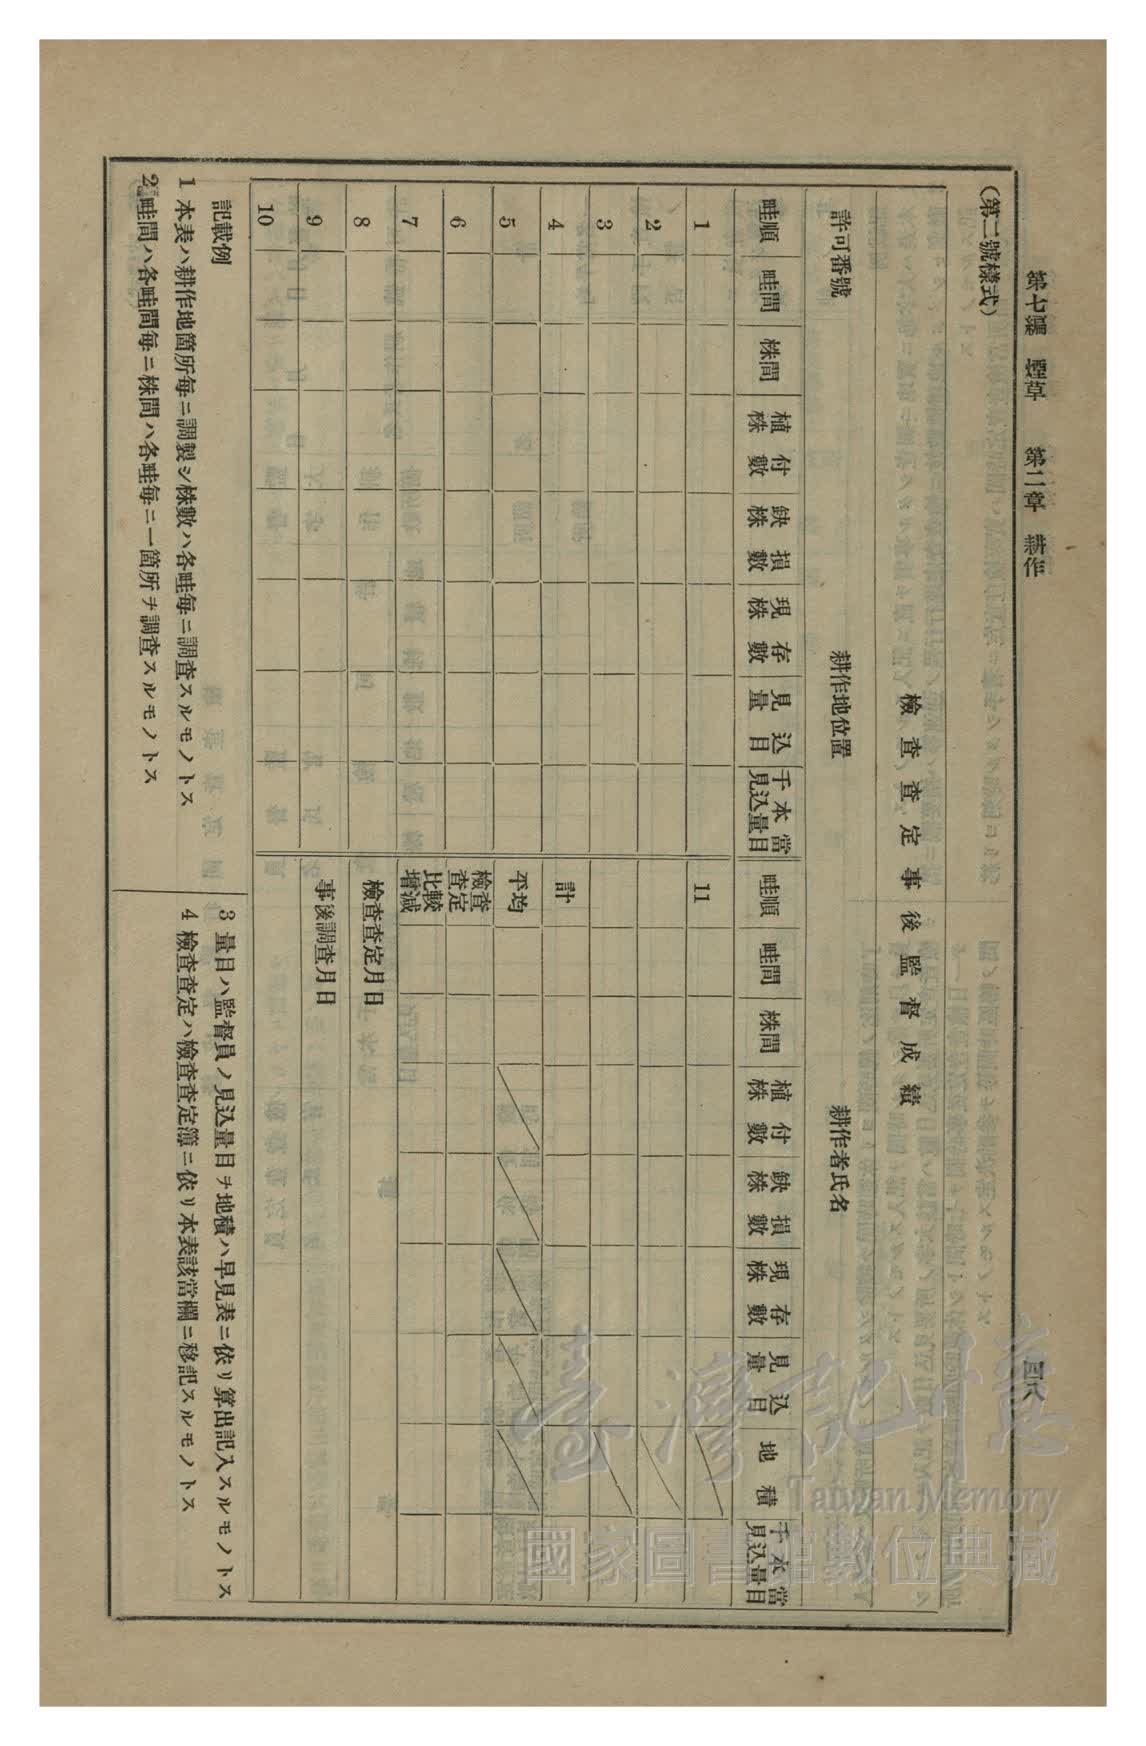 第七編 煙草 第二章 耕作
四八
(第二號樣式)
檢查查定事後監督成績
許可番號 耕作地位置 耕作者氏名
畦順 畦間 株間 植付株數 缺損株數 現存株數 見込量目 千本當見込量目 畦順 畦間 株間 植付株數 缺損株數 現存株數 見込量目 地積 千本當見込量目
1 11
2
3
4 計
5 平均
6 檢查查定
7 比較增減
8 檢查查定月日
9 事後調查月日
10
記載例
1 本表ハ耕作地箇所每ニ調製シ株數ハ各畦每ニ調查スルモノトス
2 畦間ハ各畦間每ニ株間ハ各畦每ニ一箇所ヲ調查スルモノトス
3 量目ハ監督員ノ見込量目ヲ地積ハ早見表ニ依リ算出記入スルモノトス
4 檢查查定ハ檢查查定簿ニ依リ本表該當欄ニ移記スルモノトス
臺灣記憶
Taiwan Memory
國家圖書館數位典藏